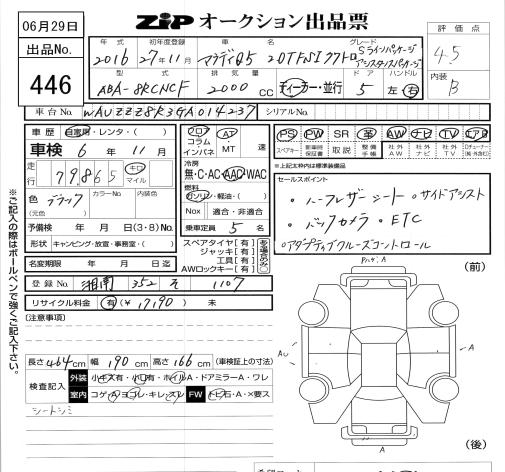 06月29日
ZIP オークション出品票
出品No.
446
評価点
4.5
内装
B
年式 初年度登録 車名 グレード
2016 27年11月 アウディQ5 2.0TFSIクワトロ Sラインパッケージ
アシスタンスパッケージ
型式 排気量 ドア ハンドル
ABA-8RCNCF 2000 CC ディーラー・並行 5 左・右
車台No. WAUZZZ8R3GA014237 シリアルNo.
車歴 自家用・レンタ・( )
車検 6年 11月
走行 79,865 キロ マイル
色 ブラック カラーNo. 内装色
(元色)
予備検 年 月 日 (3・8) No.
形状 キャンピング・放宣・事務室・( )
名変期限 年 月 日迄
フロア コラム インパネ
AT MT 速
冷房
無・C・AC・AAC・WAC
燃料
ガソリン・軽油・( )
Nox 適合・非適合
乗車定員 5 名
スペアタイヤ [有]
ジャッキ [有]
工具 [有]
AWロックキー [有]
PS PW SR 革 AW ナビ TV エアB
スペアキー 新車時保証書 取説 整備手帳 社外AW 社外ナビ 社外TV
※上記太わくは標準装備品
セールスポイント
・ハーフレザーシート ・サイドアシスト
・バックカメラ ・ETC
・アダプティブクルーズコントロール
登録No. 湘南 352 1107
リサイクル料金 有 (¥ 17,190) 未
(注意事項)
長さ 464 cm 幅 190 cm 高さ 166 cm (車検証上の寸法)
検査記入 外装 小キズ有・小凹有・ホイルA・ドアミラーA・ワレ
室内 コゲA・ヨゴレ・キレ・スレ FW トビ石・A・X要ス
シートシミ
(前)
A
A
A
(後)
※ご記入の際はボールペンで強くご記入下さい。